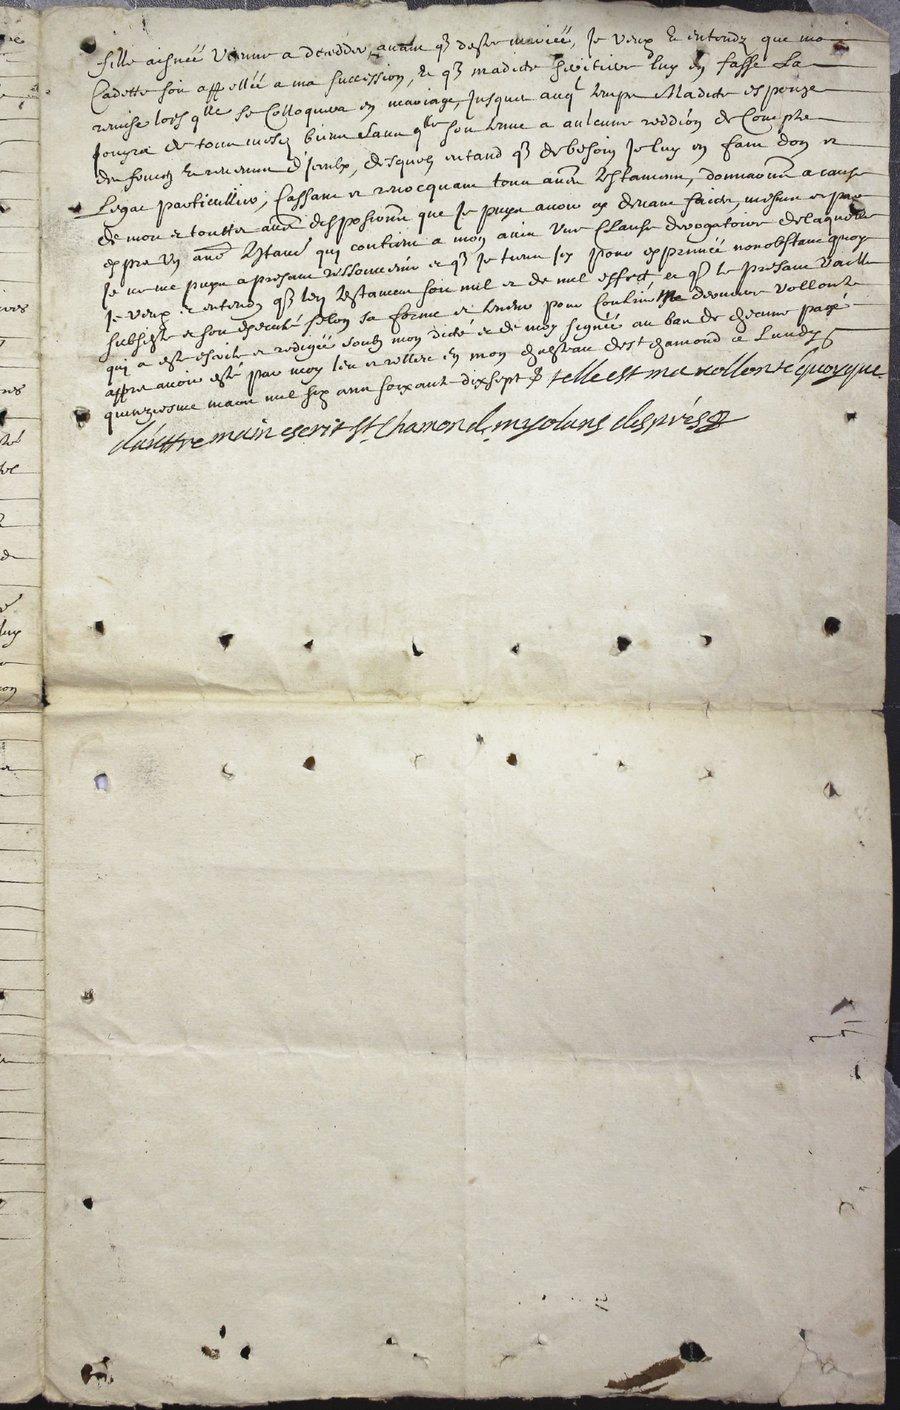 fille aisnée vienne a decedder avant q3 destre mariée, Je veux Et entendz que ma
Cadette soit appellée a ma succession, Et q3 madicte heritiere luy en fasse La
remise lors qlle se Colloquera en mariage, Jusques auql temps Madicte espouze
Jouyra de tous mesd biens sans qlle soit tenue a aulcune reddion de Compte
des fruictz Et revenus d'Iceulx, desquels entand q3 de besoin Je luy en fais don et
Legat particullier, Cassant et revocquant tous aues testamens, donnations a cause
de mort et touttes aues dispositions que Je puys avoir cy devant faictes, mesme et par
exprez un aue testamt qui contient a mon avis une Clause derogatoire de laquelle
Je ne me puys a present ressouvenir et q3 Je tiens Icy pour exprimée nonobstant quoy
Je veux et entendz q3 led testament soit nul et de nul effect et q3 le present vaille
subsiste et soit executé selon sa forme et teneur pour Contenir Ma derniere vollonté
qui a esté escrite et redigée soubz mon dicté et de moy signée au bas de chacune page
appres avoir esté par moy leu et relleu en mon chasteau de st chamond ce Lundy
quinziesme mars mil six cens soixante dix sept telle est ma vollonté quoyque
dauttre main escrit St. Chamond. myolans després